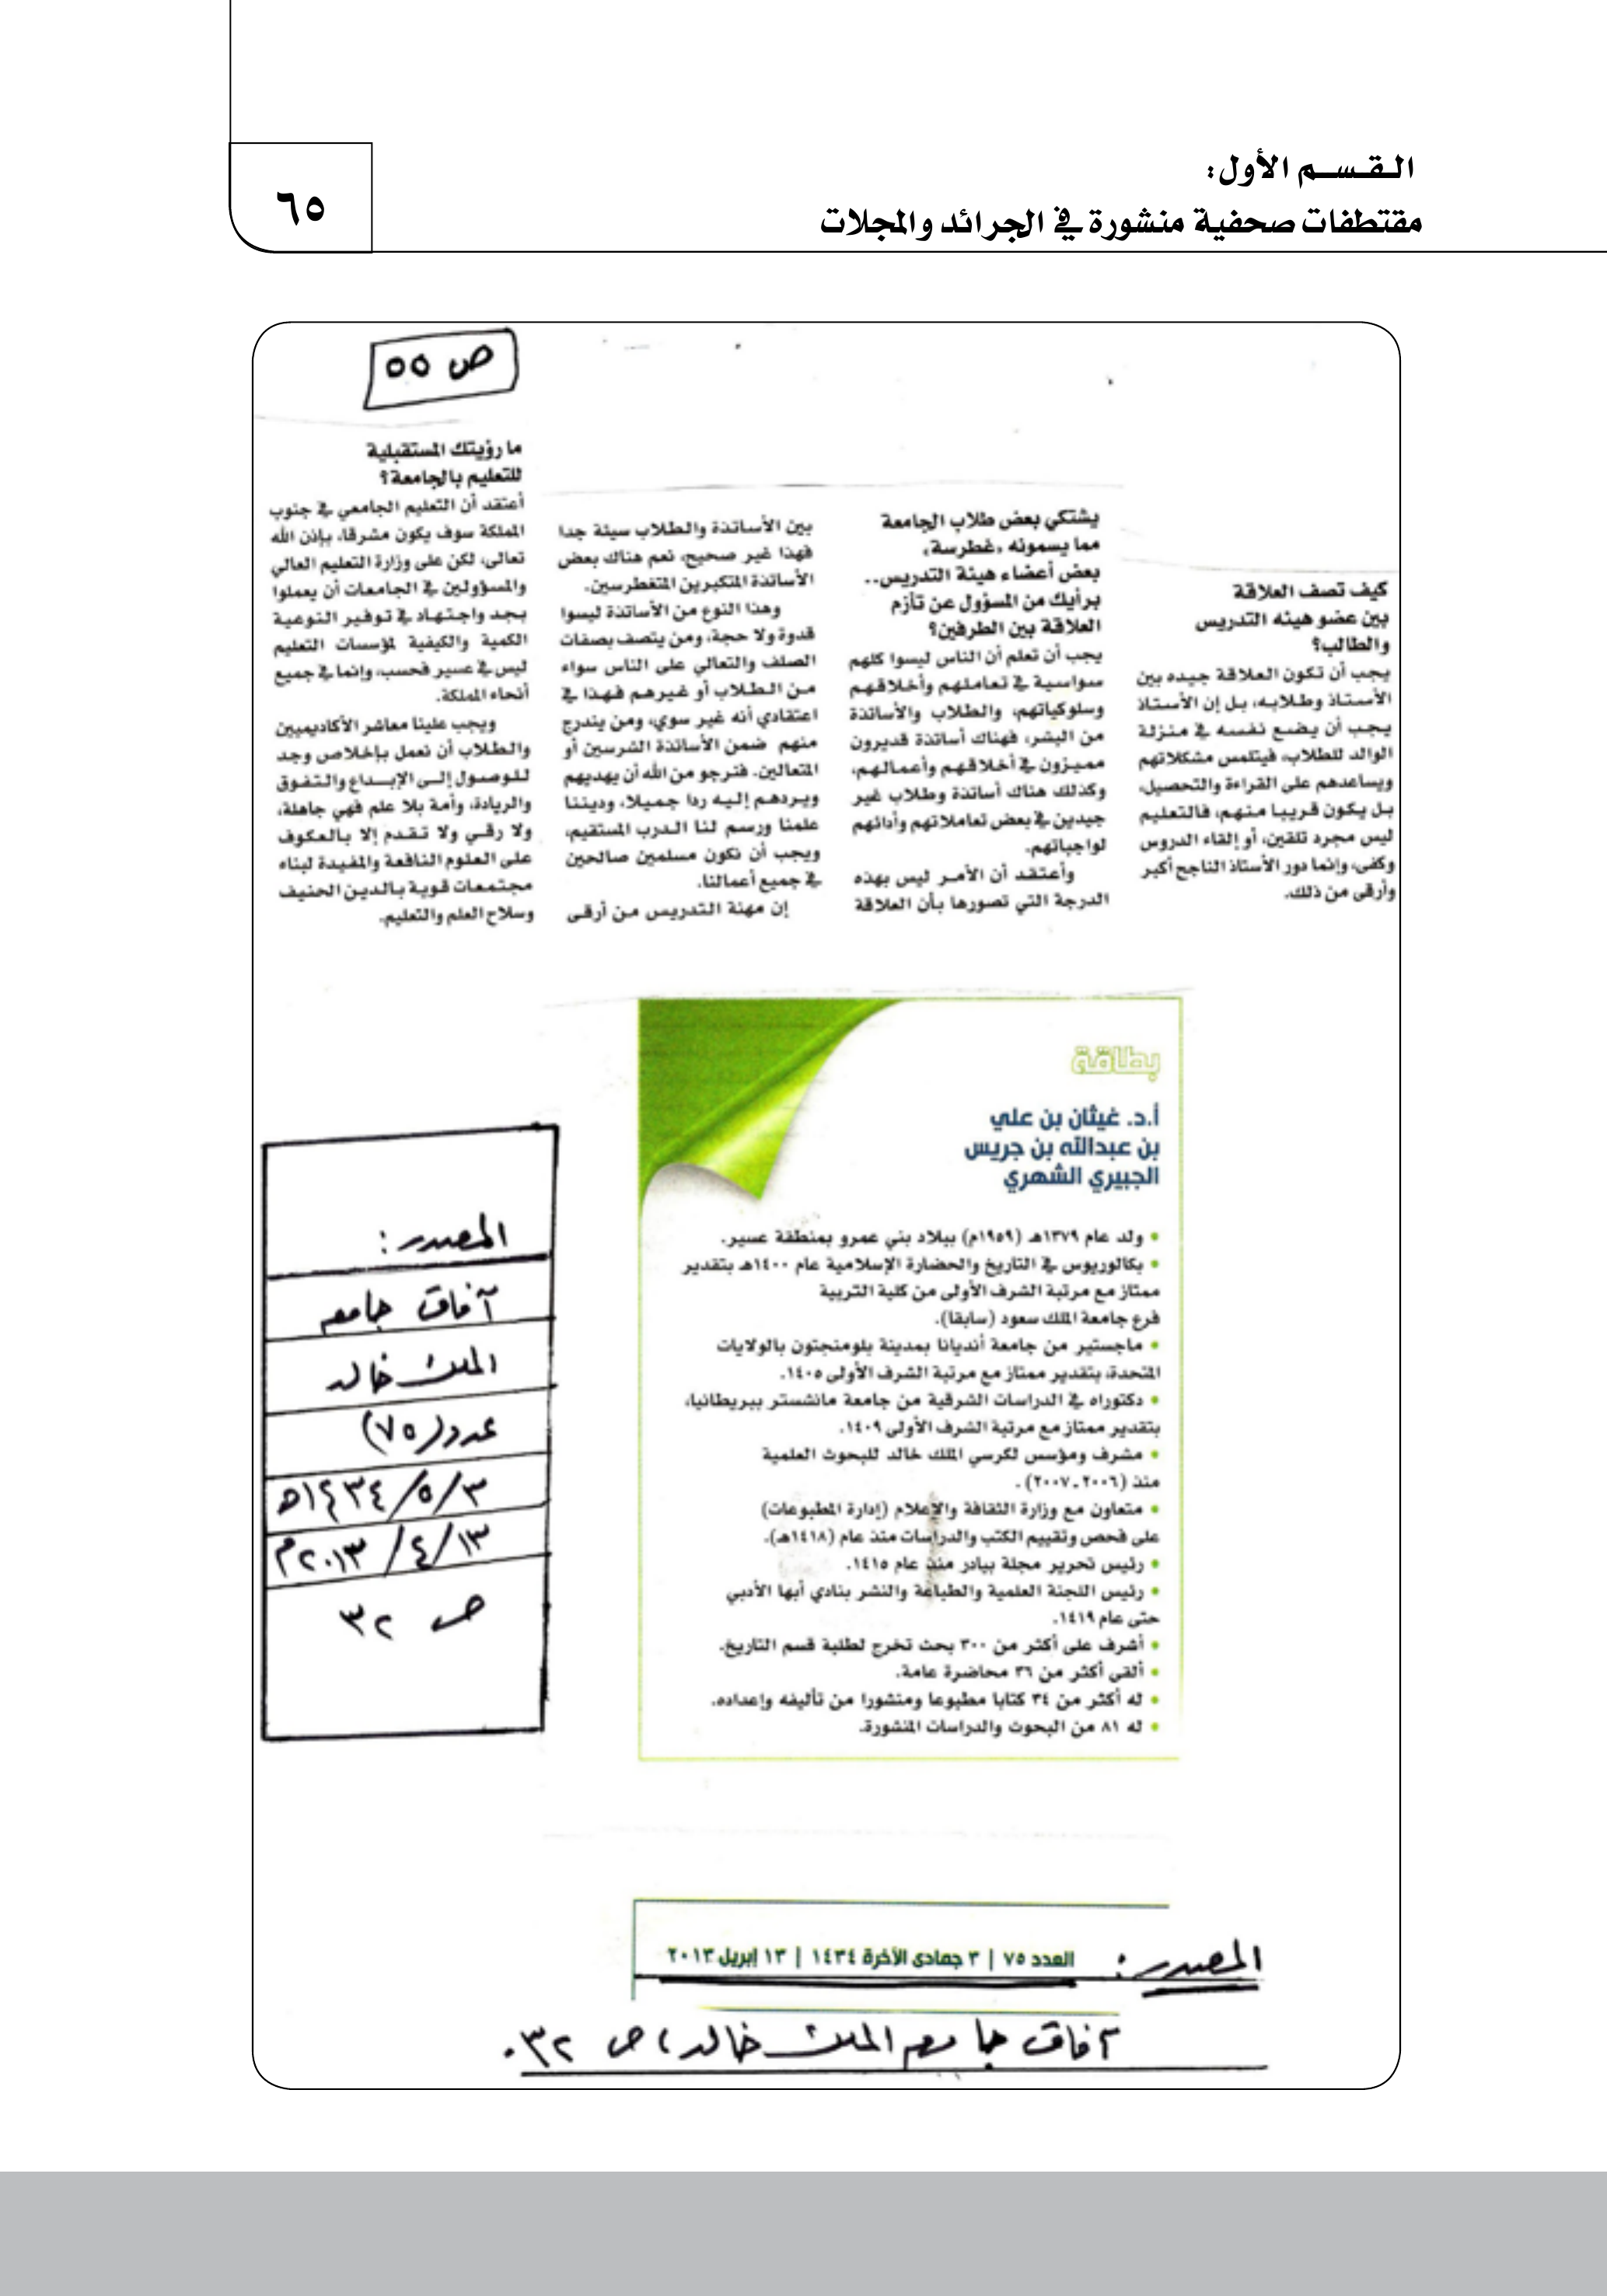 القسم الأول:
مقتطفات صحفية منشورة في الجرائد والمجلات
٦٥
ص ٥٥
كيف تصف العلاقة
بين عضو هيئه التدريس
والطالب؟
يجب أن تكون العلاقة جيده بين
الأستاذ وطلابه، بل إن الأستاذ
يجب أن يضع نفسه في منزلة
الوالد للطلاب، فيتلمس مشكلاتهم
ويساعدهم على القراءة والتحصيل،
بل يكون قريبا منهم، فالتعليم
ليس مجرد تلقين، أو إلقاء الدروس
وكفى، وإنما دور الأستاذ الناجح أكبر
وأرقى من ذلك.
يشتكي بعض طلاب الجامعة
مما يسمونه «غطرسة»
بعض أعضاء هيئة التدريس..
برأيك من المسؤول عن تأزم
العلاقة بين الطرفين؟
يجب أن تعلم أن الناس ليسوا كلهم
سواسية في تعاملهم وأخلاقهم
وسلوكياتهم، والطلاب والأساتذة
من البشر، فهناك أساتذة قديرون
مميزون في أخلاقهم وأعمالهم،
وكذلك هناك أساتذة وطلاب غير
جيدين في بعض تعاملاتهم وأدائهم
لواجباتهم.
وأعتقد أن الأمر ليس بهذه
الدرجة التي تصورها بأن العلاقة
بين الأساتذة والطلاب سيئة جدا
فهذا غير صحيح، نعم هناك بعض
الأساتذة المتكبرين المتغطرسين.
وهذا النوع من الأساتذة ليسوا
قدوة ولا حجة، ومن يتصف بصفات
الصلف والتعالي على الناس سواء
من الطلاب أو غيرهم فهذا في
اعتقادي أنه غير سوي، ومن يندرج
منهم ضمن الأساتذة الشرسين أو
المتعالين. فنرجو من الله أن يهديهم
ويردهم إليه ردا جميلا، وديننا
علمنا ورسم لنا الدرب المستقيم،
ويجب أن نكون مسلمين صالحين
في جميع أعمالنا.
إن مهنة التدريس من أرقى
ما رؤيتك المستقبلية
للتعليم بالجامعة؟
أعتقد أن التعليم الجامعي في جنوب
المملكة سوف يكون مشرقا، بإذن الله
تعالى، لكن على وزارة التعليم العالي
والمسؤولين في الجامعات أن يعملوا
بجد واجتهاد في توفير النوعية
الكمية والكيفية لمؤسسات التعليم
ليس في عسير فحسب، وإنما في جميع
أنحاء المملكة.
ويجب علينا معاشر الأكاديميين
والطلاب أن نعمل بإخلاص وجد
للوصول إلى الإبداع والتفوق
والريادة، وأمة بلا علم فهي جاهلة،
ولا رقي ولا تقدم إلا بالعكوف
على العلوم النافعة والمفيدة لبناء
مجتمعات قوية بالدين الحنيف
وسلاح العلم والتعليم.
بطاقة
أ.د. غيثان بن علي
بن عبدالله بن جريس
الجبيري الشهري
• ولد عام ١٣٧٩هـ (١٩٥٩م) ببلاد بني عمرو بمنطقة عسير.
• بكالوريوس في التاريخ والحضارة الإسلامية عام ١٤٠٠هـ بتقدير
ممتاز مع مرتبة الشرف الأولى من كلية التربية
فرع جامعة الملك سعود (سابقا).
• ماجستير من جامعة أنديانا بمدينة بلومنجتون بالولايات
المتحدة، بتقدير ممتاز مع مرتبة الشرف الأولى ١٤٠٥.
• دكتوراه في الدراسات الشرقية من جامعة مانشستر ببريطانيا،
بتقدير ممتاز مع مرتبة الشرف الأولى ١٤٠٩.
• مشرف ومؤسس لكرسي الملك خالد للبحوث العلمية
منذ (٢٠٠٦ـ٢٠٠٧) .
• متعاون مع وزارة الثقافة والإعلام (إدارة المطبوعات)
على فحص وتقييم الكتب والدراسات منذ عام (١٤١٨هـ).
• رئيس تحرير مجلة بيادر منذ عام ١٤١٥.
• رئيس اللجنة العلمية والطباعة والنشر بنادي أبها الأدبي
حتى عام ١٤١٩.
• أشرف على أكثر من ٣٠٠ بحث تخرج لطلبة قسم التاريخ.
• ألقى أكثر من ٣٦ محاضرة عامة.
• له أكثر من ٣٤ كتابا مطبوعا ومنشورا من تأليفه وإعداده.
• له ٨١ من البحوث والدراسات المنشورة.
المصدر:
آفاق جامعة
الملك خالد
عدد (٧٥)
٣/٥/١٤٣٤هـ
١٣/٤/٢٠١٣م
ص ٣٢
المصدر: العدد ٧٥ | ٣ جمادى الآخرة ١٤٣٤ | ١٣ إبريل ٢٠١٣
آفاق جامعة الملك خالد، ص ٣٢.